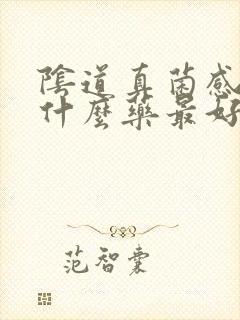 陰道真菌感
什麼藥最好
范智囊